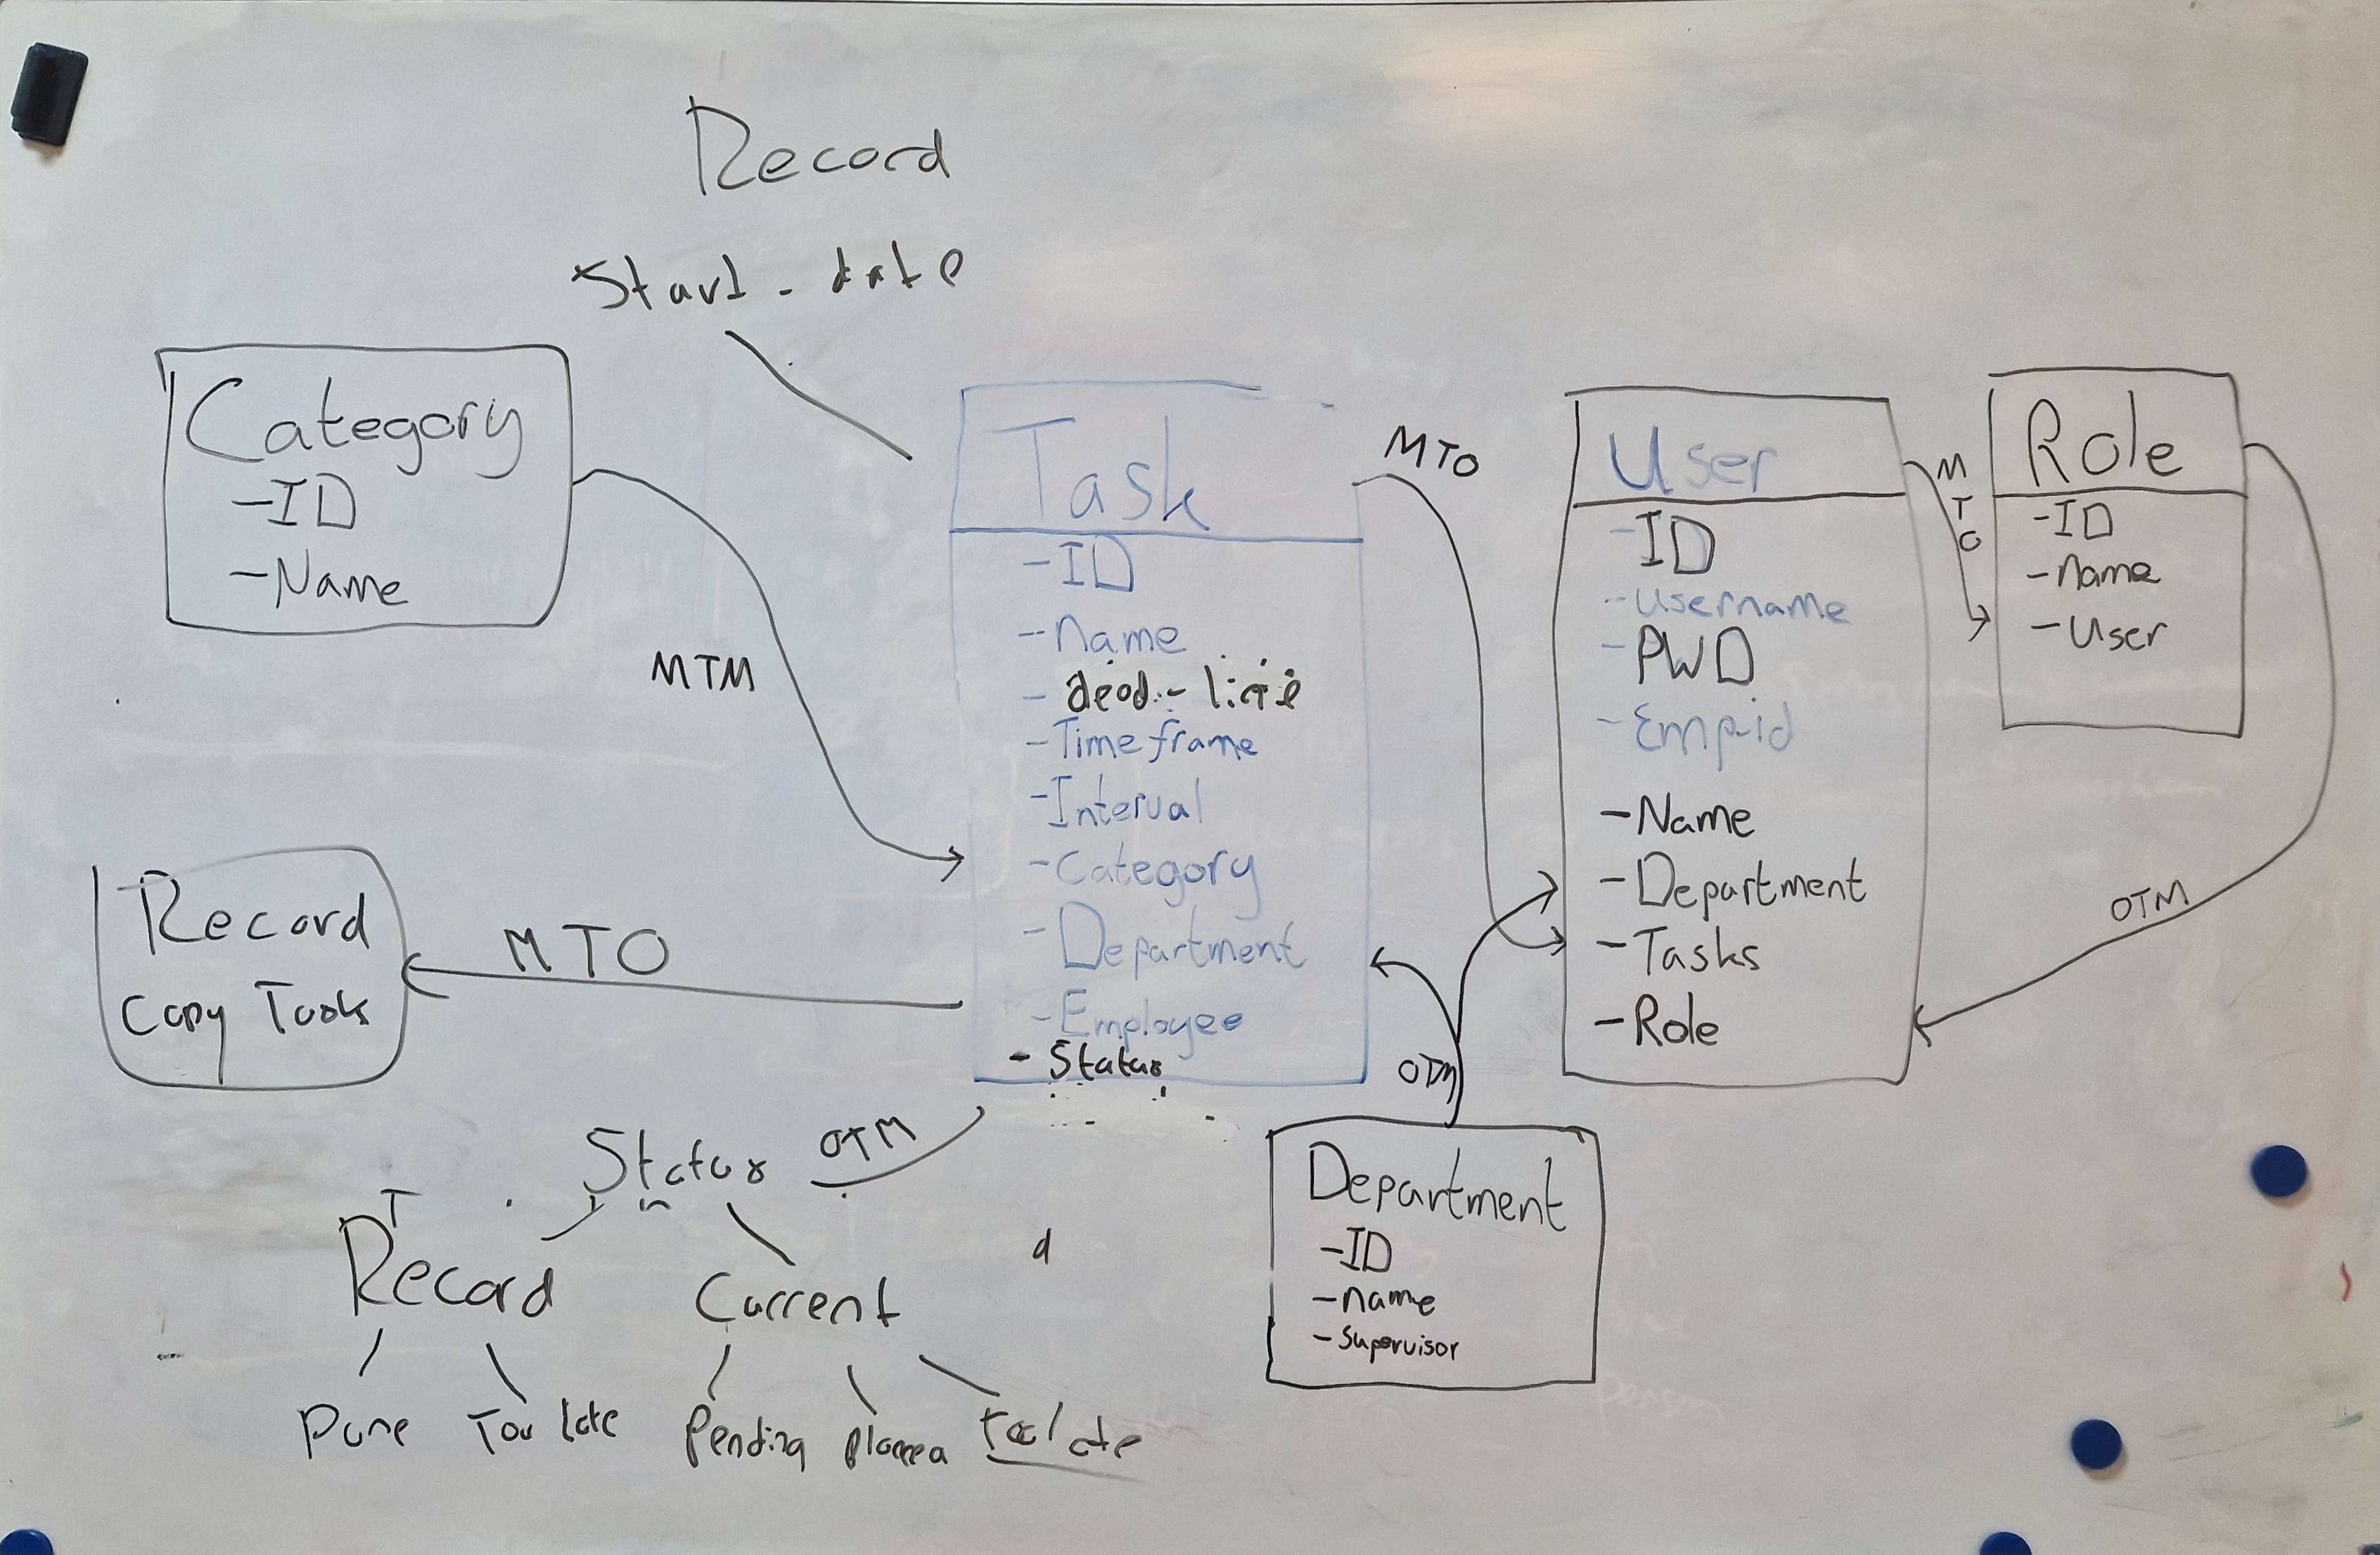 Record
Start-date
Category
-ID
-Name
MTM
Task
-ID
-Name
-dead-line
-Timeframe
-Interval
-Category
-Department
-Employee
-Status
MTO
User
-ID
-Username
-PWD
-Emp-id
-Name
-Department
-Tasks
-Role
MTO
Role
-ID
-Name
-User
OTM
Record
Copy
MTO
OTM
Department
-ID
-Name
-Supervisor
Status OTM
T
Record
Current
d
Too late
Pending
Too late